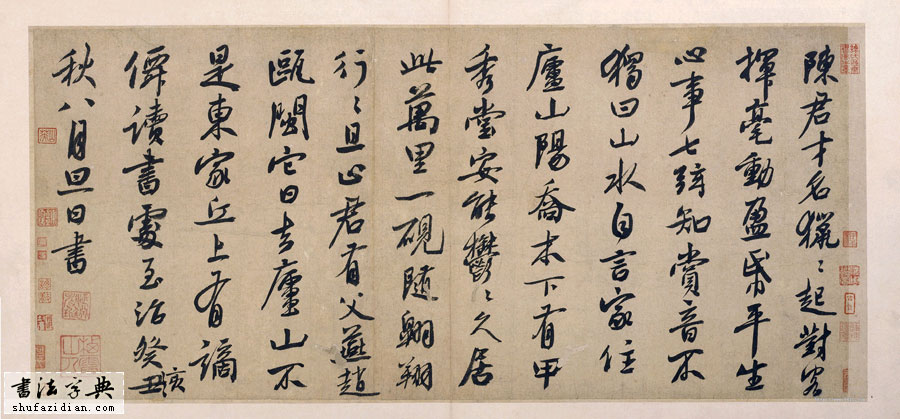 陳君才名獵〻起對客
揮毫動盈帋平生
心事七弦知賞音不
獨曰山水自言家住
廬山陽喬木下有甲
秀堂安能鬱〻久居
此萬里一硯隨翱翔
行〻且止君有父燕趙
甌閩它日去廬山不
是東家丘上有謫
僊讀書處至治癸亥
秋八月旦日書
書法字典
shufazidian.com